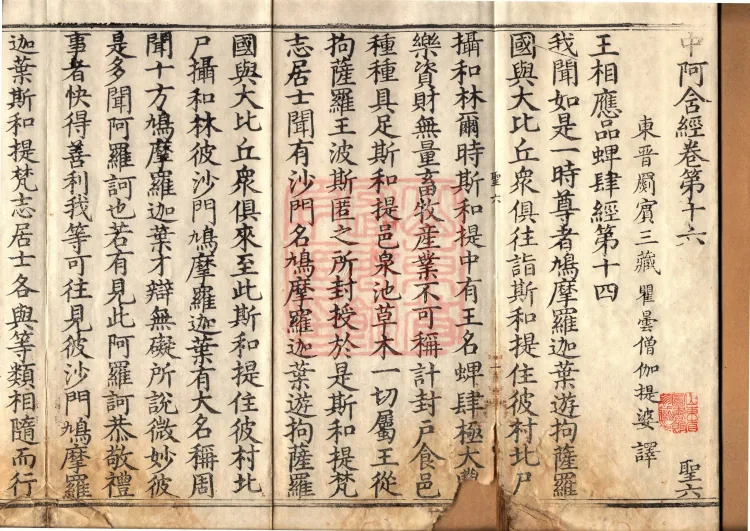 中阿含經卷第十六
聖六
東晉罽賓三藏瞿曇僧伽提婆譯
王相應品蜱肆經第十四
我聞如是一時尊者鳩摩羅迦葉遊拘薩羅
國與大比丘眾俱往詣斯和提住彼村北尸
聖六
攝和林爾時斯和提中有王名蜱肆極大豐
樂資財無量畜牧產業不可稱計封戶食邑
種種具足斯和提邑泉池草木一切屬王從
拘薩羅王波斯匿之所封授於是斯和提梵
志居士聞有沙門名鳩摩羅迦葉遊拘薩羅
國與大比丘眾俱來至此斯和提住彼村北
尸攝和林彼沙門鳩摩羅迦葉有大名稱周
聞十方鳩摩羅迦葉才辯無礙所說微妙彼
是多聞阿羅訶也若有見此阿羅訶恭敬禮
事者快得善利我等可往見彼沙門鳩摩羅
迦葉斯和提梵志居士各與等類相隨而行